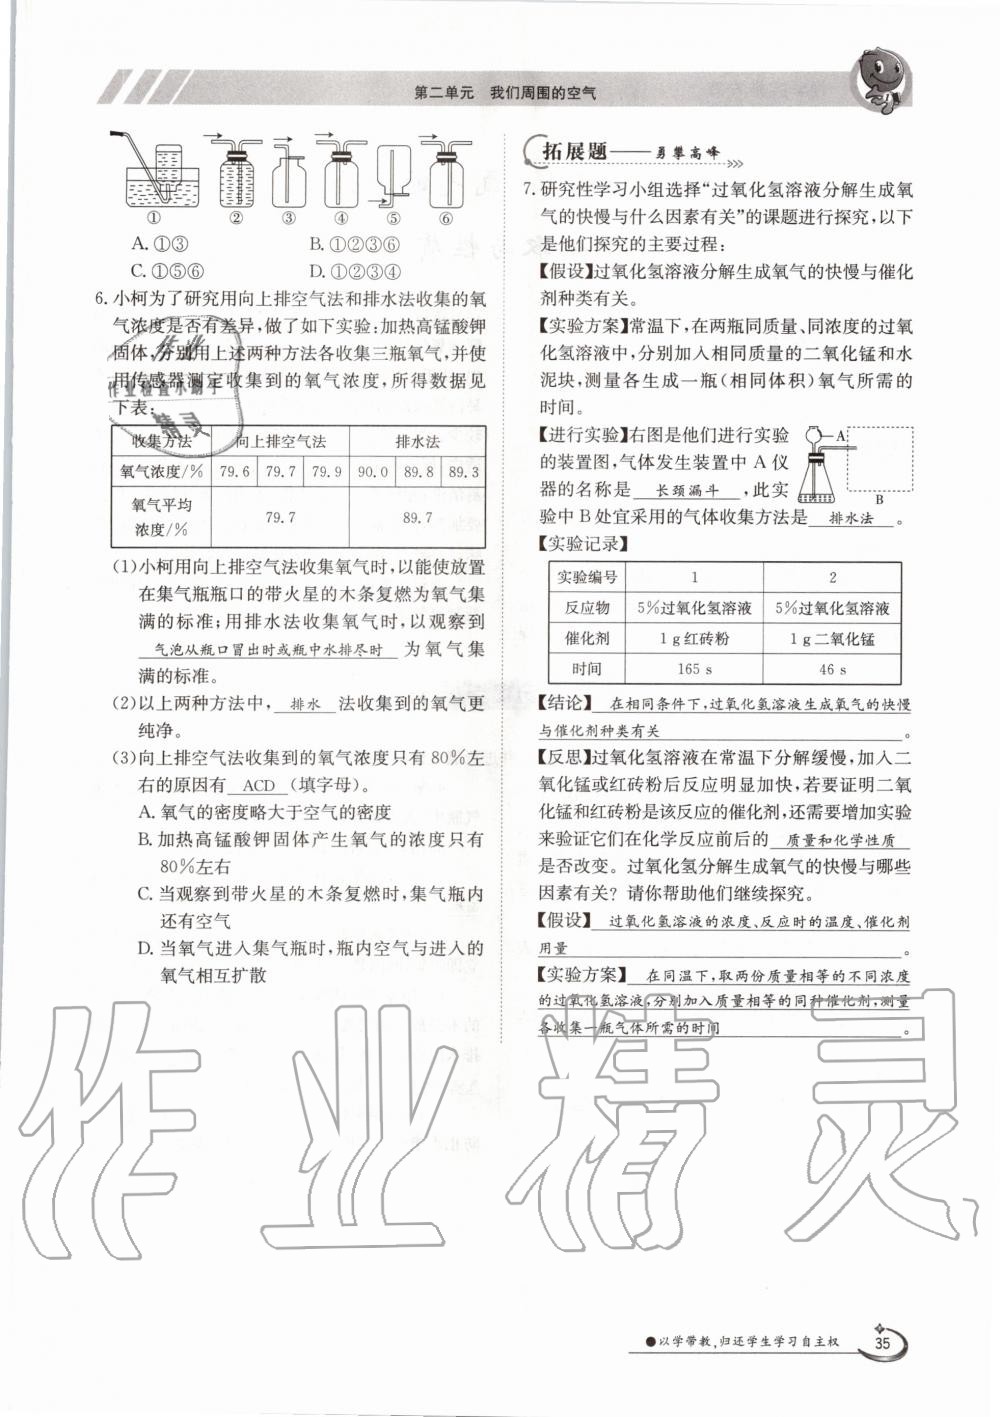 第二单元 我们周围的空气
① ② ③ ④ ⑤ ⑥
A. ①③ B. ①②③⑥
C. ①⑤⑥ D. ①②③④
6. 小柯为了研究用向上排空气法和排水法收集的氧
气浓度是否有差异,做了如下实验:加热高锰酸钾
固体,分别用上述两种方法各收集三瓶氧气,并使
用传感器测定收集到的氧气浓度,所得数据见
下表:
收集方法 向上排空气法 排水法
氧气浓度/% 79.6 79.7 79.9 90.0 89.8 89.3
氧气平均
浓度/%
79.7 89.7
(1)小柯用向上排空气法收集氧气时,以能使放置
在集气瓶瓶口的带火星的木条复燃为氧气集
满的标准;用排水法收集氧气时,以观察到
气泡从瓶口冒出时或瓶中水排尽时 为氧气集
满的标准。
(2)以上两种方法中, 排水 法收集到的氧气更
纯净。
(3)向上排空气法收集到的氧气浓度只有80%左
右的原因有 ACD (填字母)。
A. 氧气的密度略大于空气的密度
B. 加热高锰酸钾固体产生氧气的浓度只有
80%左右
C. 当观察到带火星的木条复燃时,集气瓶内
还有空气
D. 当氧气进入集气瓶时,瓶内空气与进入的
氧气相互扩散
拓展题——勇攀高峰
7. 研究性学习小组选择“过氧化氢溶液分解生成氧
气的快慢与什么因素有关”的课题进行探究,以下
是他们探究的主要过程:
【假设】过氧化氢溶液分解生成氧气的快慢与催化
剂种类有关。
【实验方案】常温下,在两瓶同质量、同浓度的过氧
化氢溶液中,分别加入相同质量的二氧化锰和水
泥块,测量各生成一瓶(相同体积)氧气所需的
时间。
【进行实验】右图是他们进行实验
的装置图,气体发生装置中A仪
器的名称是 长颈漏斗 ,此实
验中B处宜采用的气体收集方法是 排水法 。
A
B
【实验记录】
实验编号 1 2
反应物 5%过氧化氢溶液 5%过氧化氢溶液
催化剂 1 g红砖粉 1 g二氧化锰
时间 165 s 46 s
【结论】 在相同条件下,过氧化氢溶液生成氧气的快慢
与催化剂种类有关 。
【反思】过氧化氢溶液在常温下分解缓慢,加入二
氧化锰或红砖粉后反应明显加快,若要证明二氧
化锰和红砖粉是该反应的催化剂,还需要增加实验
来验证它们在化学反应前后的 质量和化学性质
是否改变。过氧化氢分解生成氧气的快慢与哪些
因素有关?请你帮助他们继续探究。
【假设】 过氧化氢溶液的浓度、反应时的温度、催化剂
用量 。
【实验方案】 在同温下,取两份质量相等的不同浓度
的过氧化氢溶液,分别加入质量相等的同种催化剂,测量
各收集一瓶气体所需的时间 。
作业
作业检查小助手
精灵
作业精灵
●以学带教,归还学生学习自主权
35